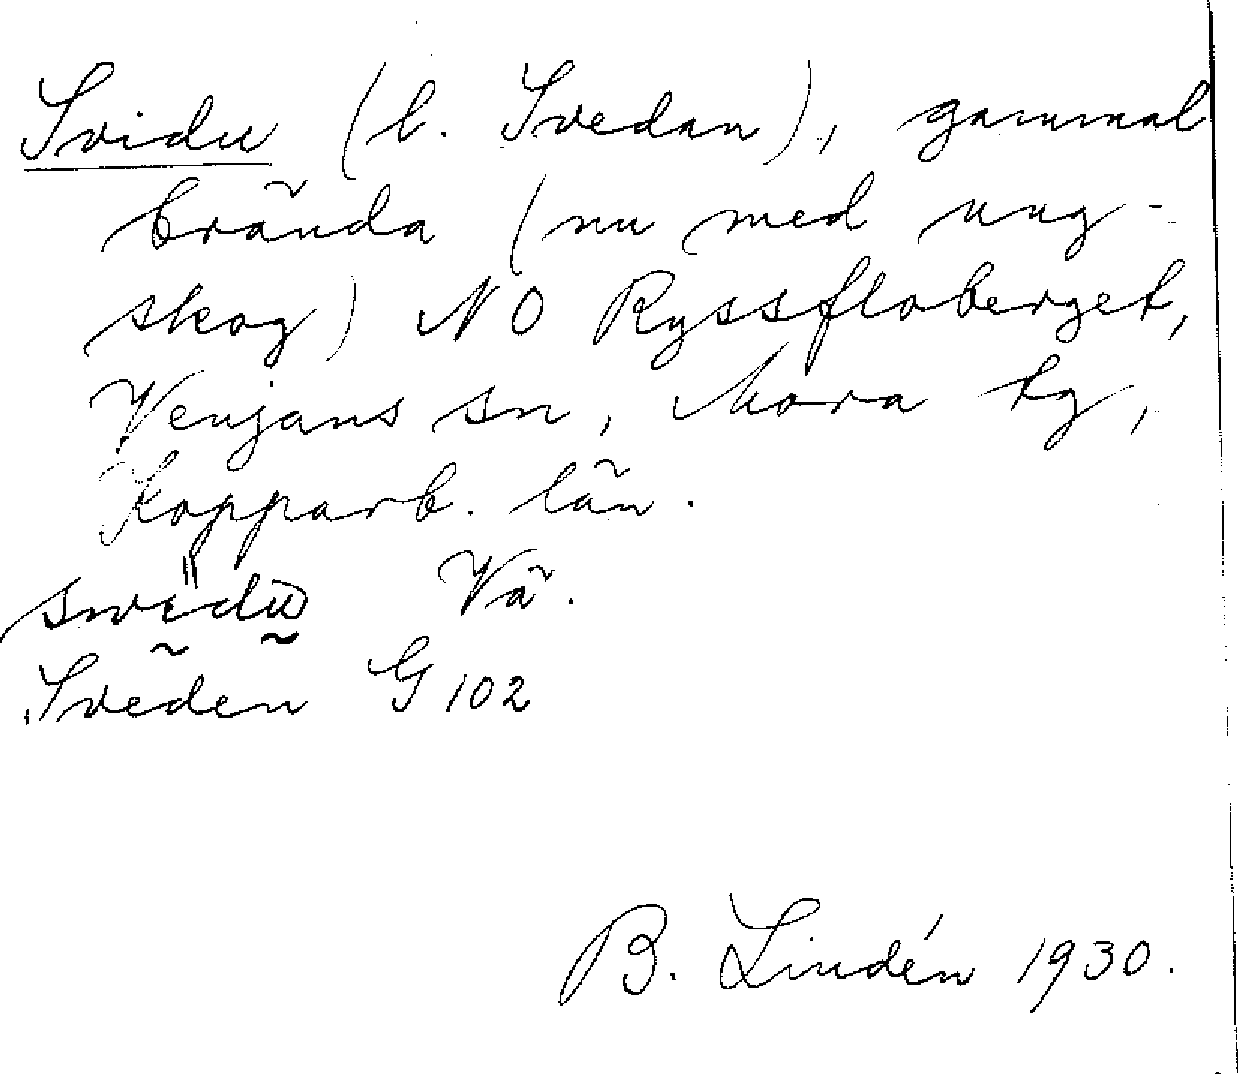 Svidu (l. Svedan), gammal
brända (nu med ung-
skog) NO Ryssfloberget,
Venjans sn, Mora tg,
Kopparb. län.
Vä.
Sveden G 102
B. Lindén 1930.